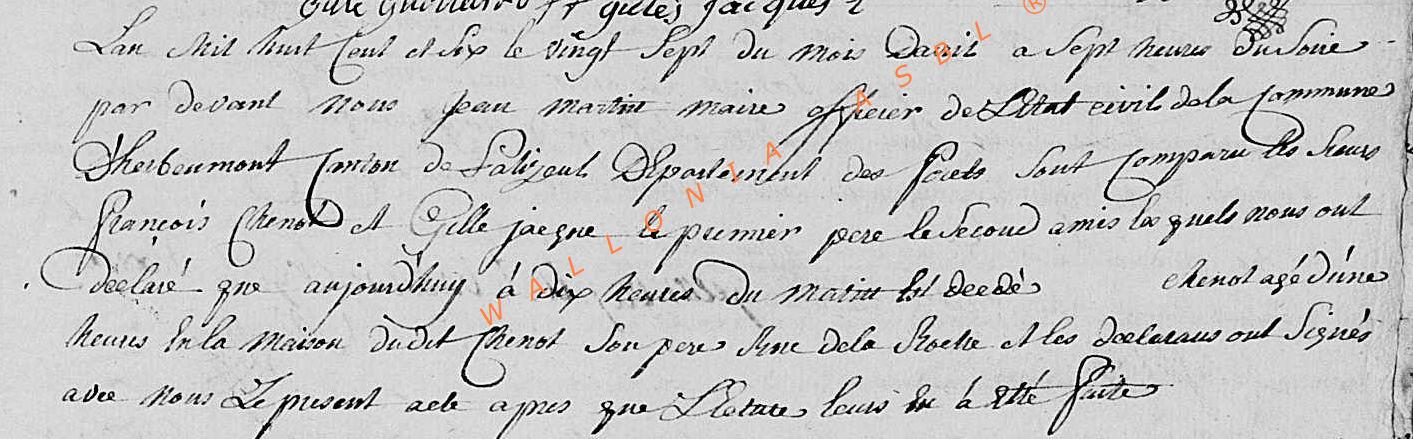 gilles jacques
Lan Mil huit Cent et Six le vingt Sept du mois Davril a Sept heures du Soire
par devant nous Jean martin maire officier de L'Etat civil de la Commune
D'herbeumont Canton de Paliseul Département des forets Sont Comparu les Sieurs
françois Chenot et Gille jacque le premier pere le Second amis les quels nous ont
déclaré que aujourd'huy à dix heures du matin Est decedé chenot agé d'une
heures En la maison dudit Chenot Son pere Rue de la Roche et les declarans ont Signés
avec nous Le present acte apres que Lecture leurs En à Etté faite
WALLONIA ASBL ®